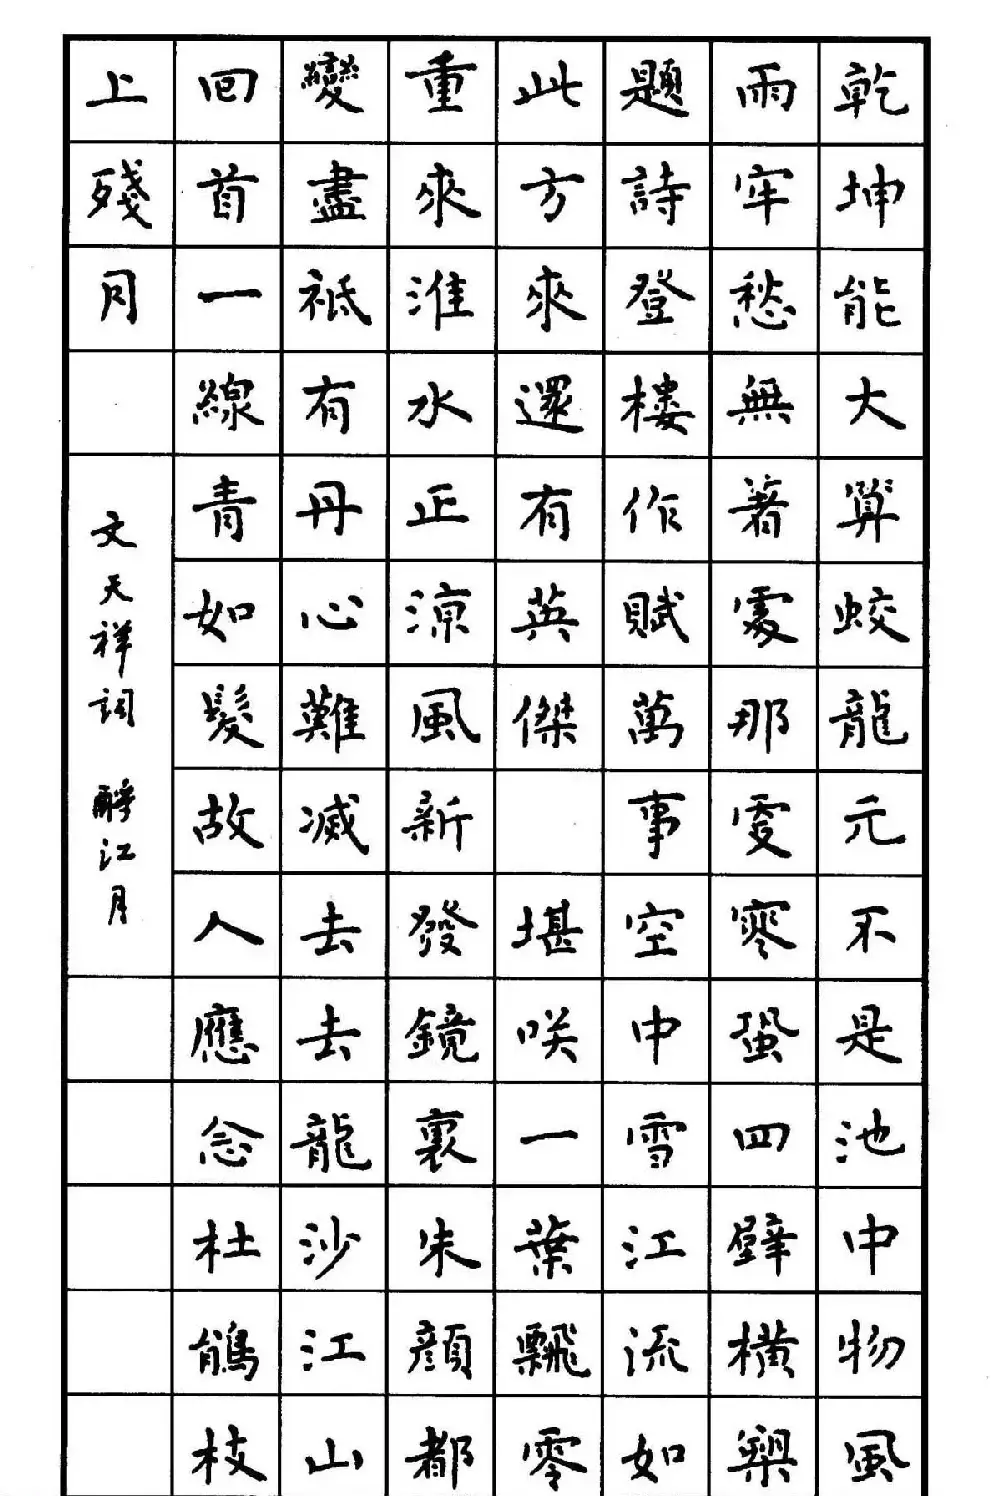 乾坤能大算蛟龍元不是池中物風
雨牢愁無著處那雯寒蛩四壁橫槊
題詩登樓作賦萬事空中雪江流如
此方來還有英傑 堪咲一葉飄零
重來淮水正涼風新發鏡裏朱顏都
變盡祗有丹心難滅去去龍沙江山
回首一線青如髮故人應念杜鵑枝
上殘月
文天祥詞 酹江月